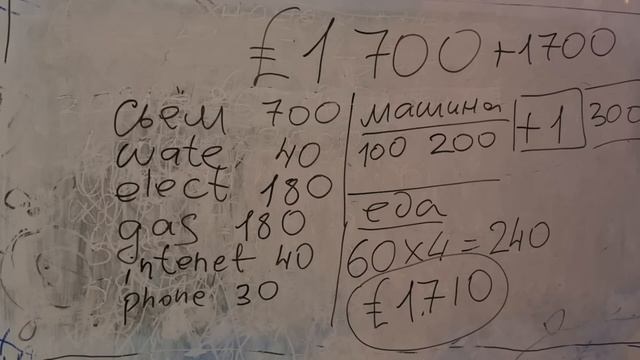 £1 700 +1700
съём 700
wate 40
elect 180
gas 180
intenet 40
phone 30
машина
100 200
+1 300
еда
60x4=240
£1.710